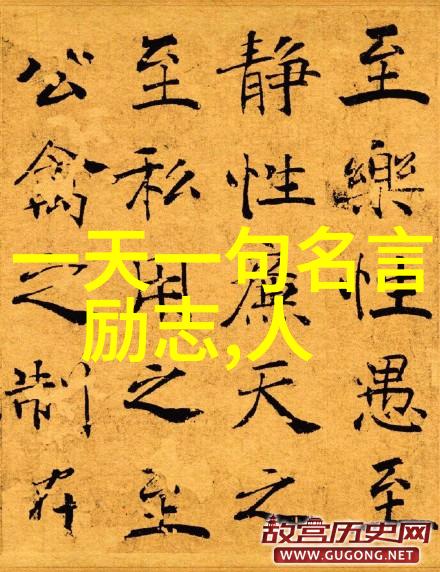 至樂性愚至
静性廉天之
至私用之至
公禽之制在
一天一句名言
励志,人
故宫历史网
WWW.GUGONG.NET